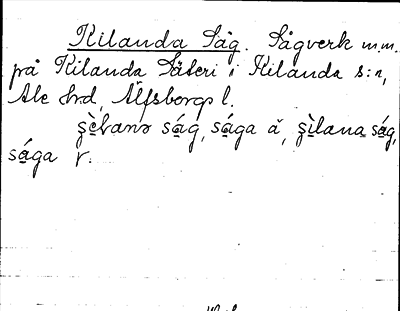 Kilanda Såg. Sågverk m.m.
på Kilanda Säteri i Kilanda s:n,
Ale hrd, Älfsborgs l.
såg, såga ă, såg,
såga r.